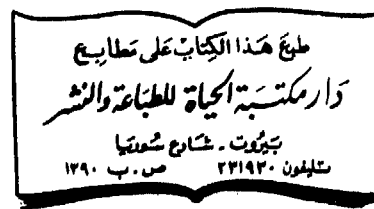 طبع هَذا الكِتابْ عَلى مَطابِع
دَار مكتَبَة الحيَاة للطبَاعَة والنشر
بَيروت - شارع سُوريا
تليفون ٢٣١٩٣٠ ص. ب ١٣٩٠